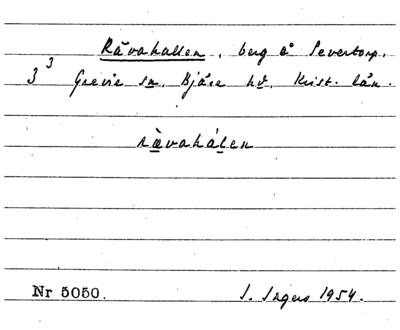 Råvahallen, berg å Severtorp,
3³ Grevie sn, Bjäre hd, Krist. län.
rävahálen
Nr 5050. S. Ingers 1954.